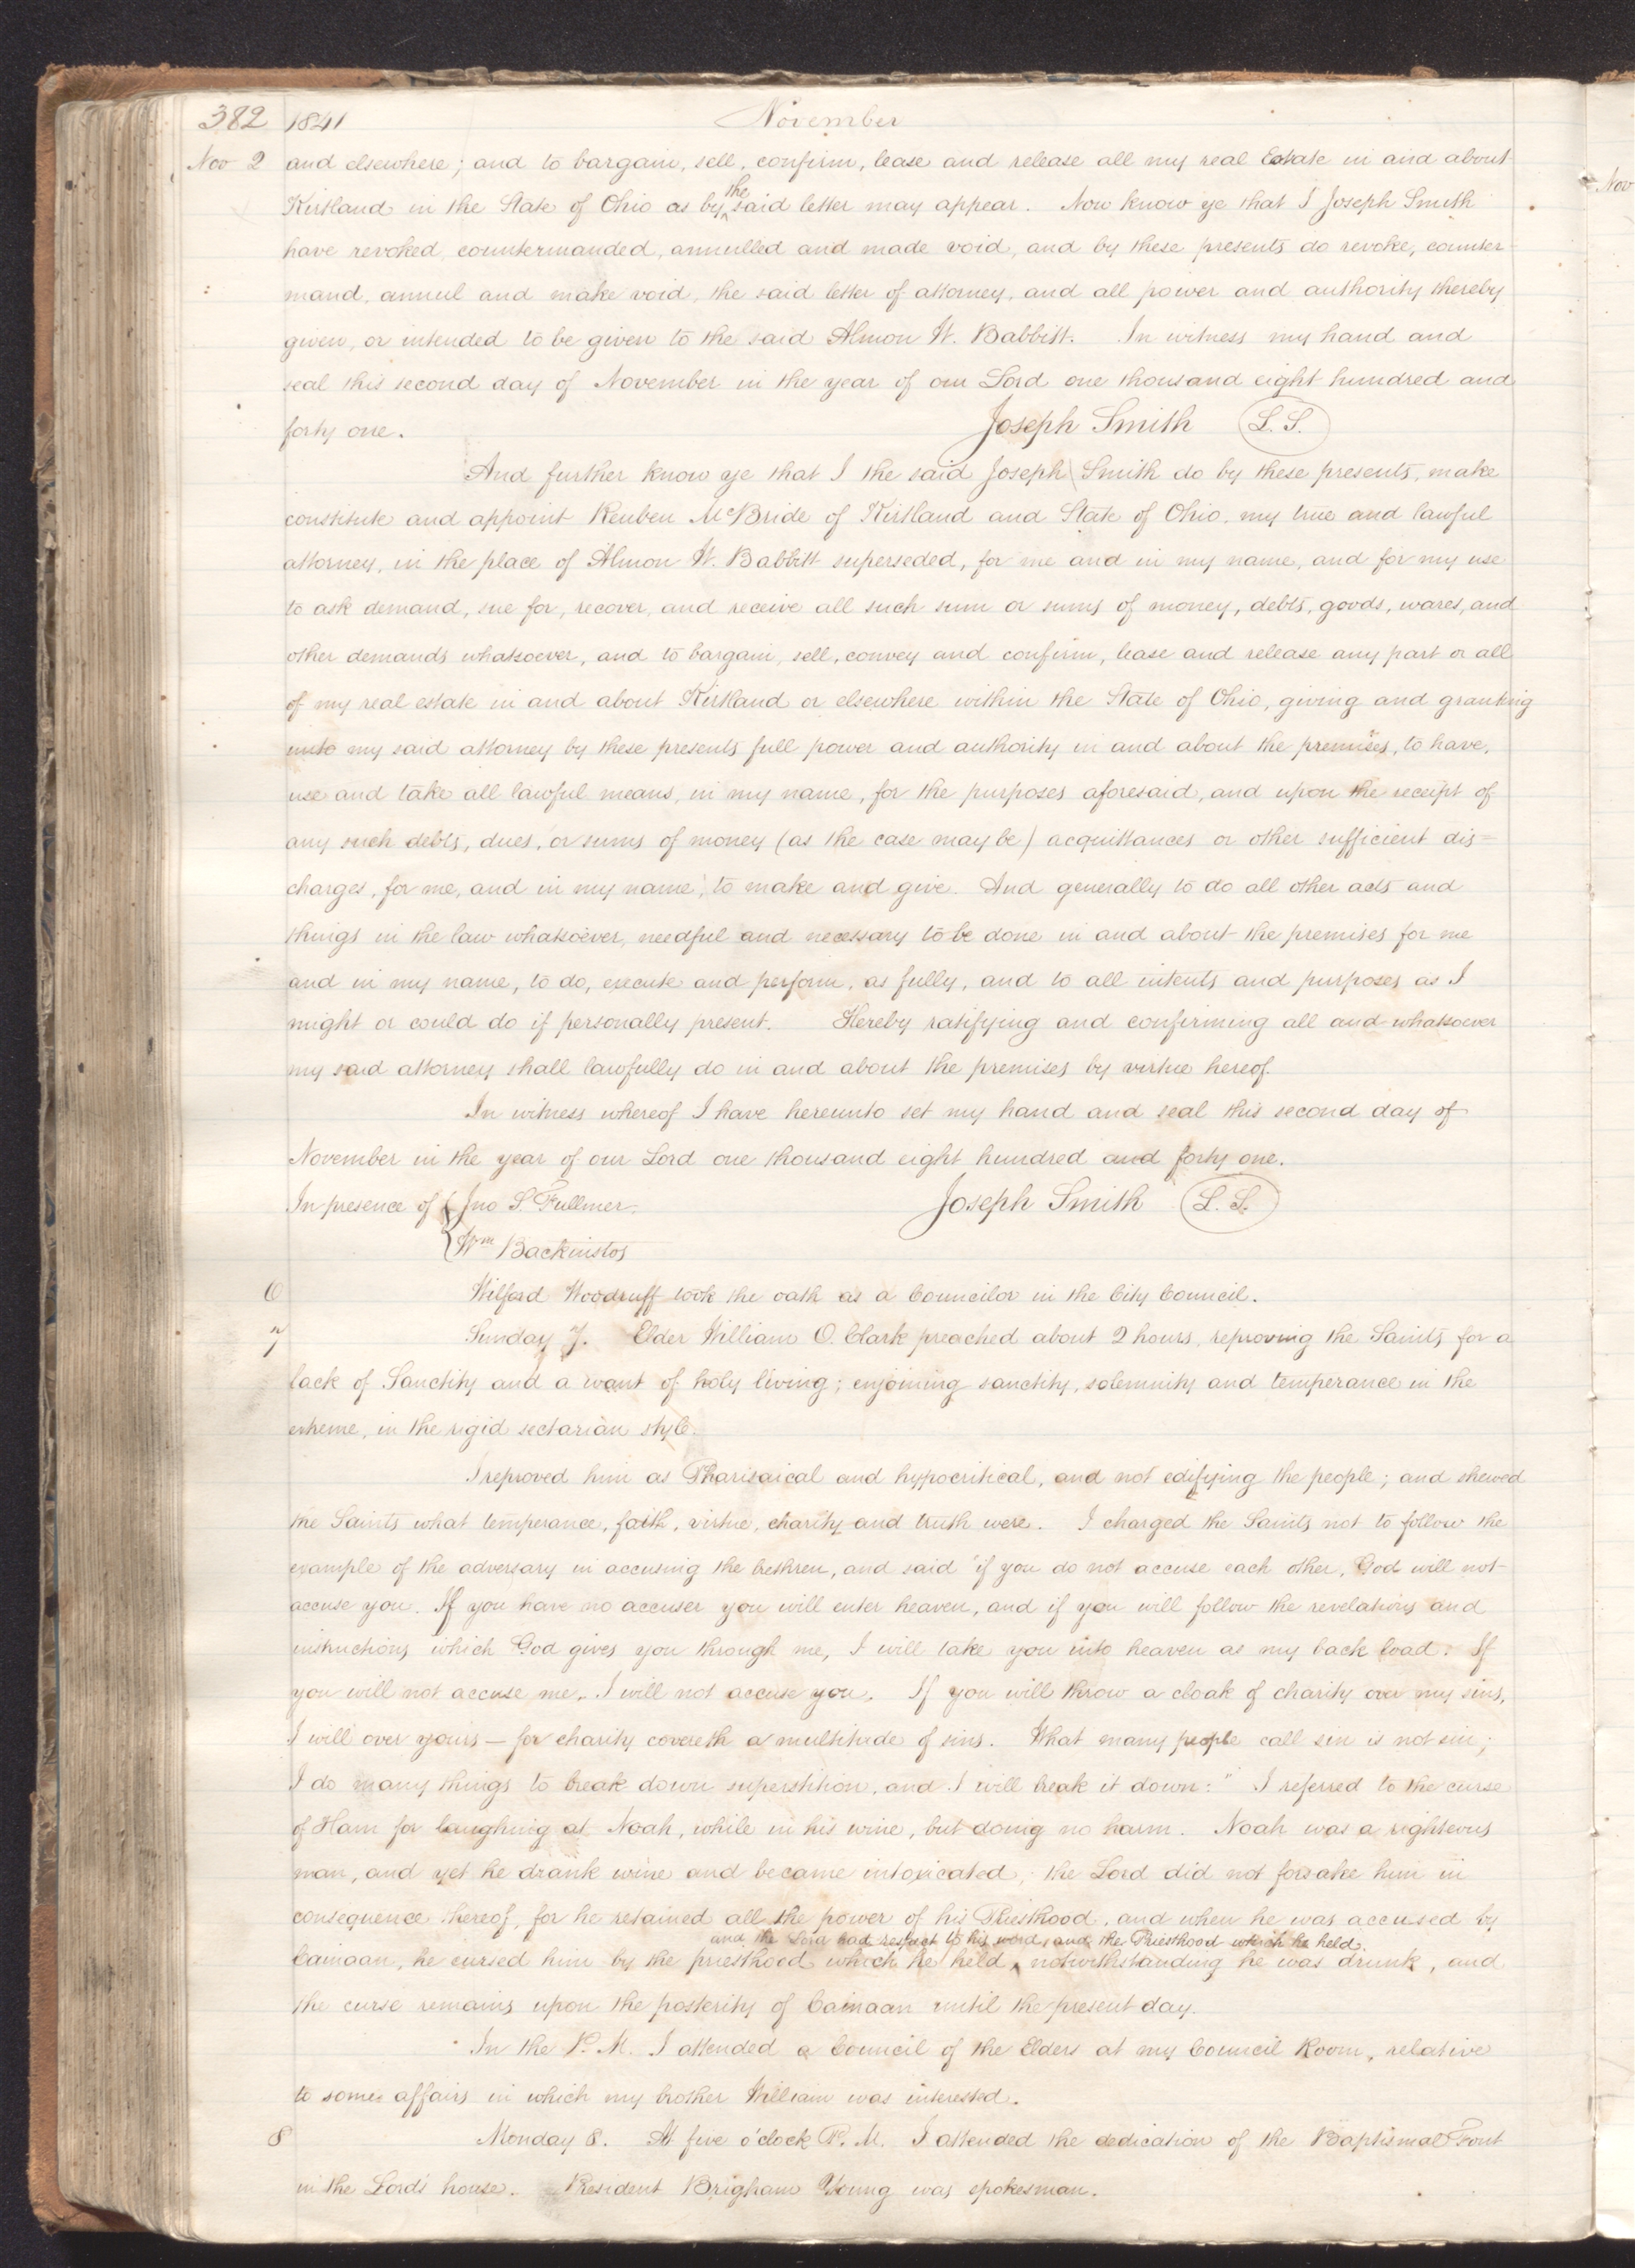 382 1841 November
Nov 2 and elsewhere; and to bargain, sell, confirm, lease and release all my real Estate in and about
the
Kirtland in the State of Ohio as by said letter may appear. Now know ye that I Joseph Smith
have revoked, countermanded, annulled and made void, and by these presents do revoke, counter-
mand, annul and make void, the said letter of attorney, and all power and authority thereby
given, or intended to be given to the said Almon W. Babbitt. In witness my hand and
seal this second day of November in the year of our Lord one thousand eight hundred and
forty one. Joseph Smith L. S.
And further know ye that I the said Joseph Smith do by these presents, make
constitute and appoint Reuben McBride of Kirtland and State of Ohio, my true and lawful
attorney, in the place of Almon W. Babbitt superseded, for me and in my name, and for my use
to ask demand, sue for, recover, and receive all such sum or sums of money, debts, goods, wares, and
other demands whatsoever, and to bargain, sell, convey and confirm, lease and release any part or all
of my real estate in and about Kirtland or elsewhere within the State of Ohio, giving and granting
unto my said attorney by these presents full power and authority in and about the premises, to have,
use and take all lawful means, in my name, for the purposes aforesaid, and upon the receipt of
any such debts, dues, or sums of money (as the case may be) acquittances or other sufficient dis=
charges, for me, and in my name, to make and give. And generally to do all other acts and
things in the law whatsoever, needful and necessary to be done in and about the premises for me
and in my name, to do, execute and perform, as fully, and to all intents and purposes as I
might or could do if personally present. Hereby ratifying and confirming all and whatsoever
my said attorney shall lawfully do in and about the premises by virtue hereof.
In witness whereof I have hereunto set my hand and seal this second day of
November in the year of our Lord one thousand eight hundred and forty one.
In presence of { Jno S. Fullmer. Joseph Smith L. S.
Wm Backinstos
6 Wilford Woodruff took the oath as a Councilor in the City Council.
7 Sunday 7. Elder William O. Clark preached about 2 hours, reproving the Saints for a
lack of Sanctity and a want of holy living; enjoining sanctity, solemnity and temperance in the
extreme, in the rigid sectarian style.
I reproved him as Pharisaical and hypocritical, and not edifying the people; and shewed
the Saints what temperance, faith, virtue, charity and truth were. I charged the Saints not to follow the
example of the adversary in accusing the brethren, and said "if you do not accuse each other, God will not
accuse you. If you have no accuser you will enter heaven, and if you will follow the revelations and
instructions which God gives you through me, I will take you into heaven as my back load. If
you will not accuse me, I will not accuse you. If you will throw a cloak of charity over my sins,
I will over yours — for charity covereth a multitude of sins. What many people call sin is not sin;
I do many things to break down superstition, and I will break it down:" I referred to the curse
of Ham for laughing at Noah, while in his wine, but doing no harm. Noah was a righteous
man, and yet he drank wine and became intoxicated; the Lord did not forsake him in
consequence thereof, for he retained all the power of his Priesthood, and when he was accused by
and the Lord had respect to his word, and the Priesthood which he held,
Cainaan, he cursed him by the priesthood which he held, notwithstanding he was drunk, and
the curse remains upon the posterity of Cainaan until the present day.
In the P. M. I attended a Council of the Elders at my Council Room, relative
to some affairs in which my brother William was interested.
8 Monday 8. At five o'clock P. M. I attended the dedication of the Baptismal Font
in the Lord's house. President Brigham Young was spokesman.
Nov